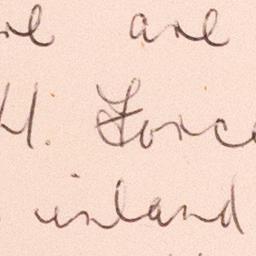 are
H. Force
inland